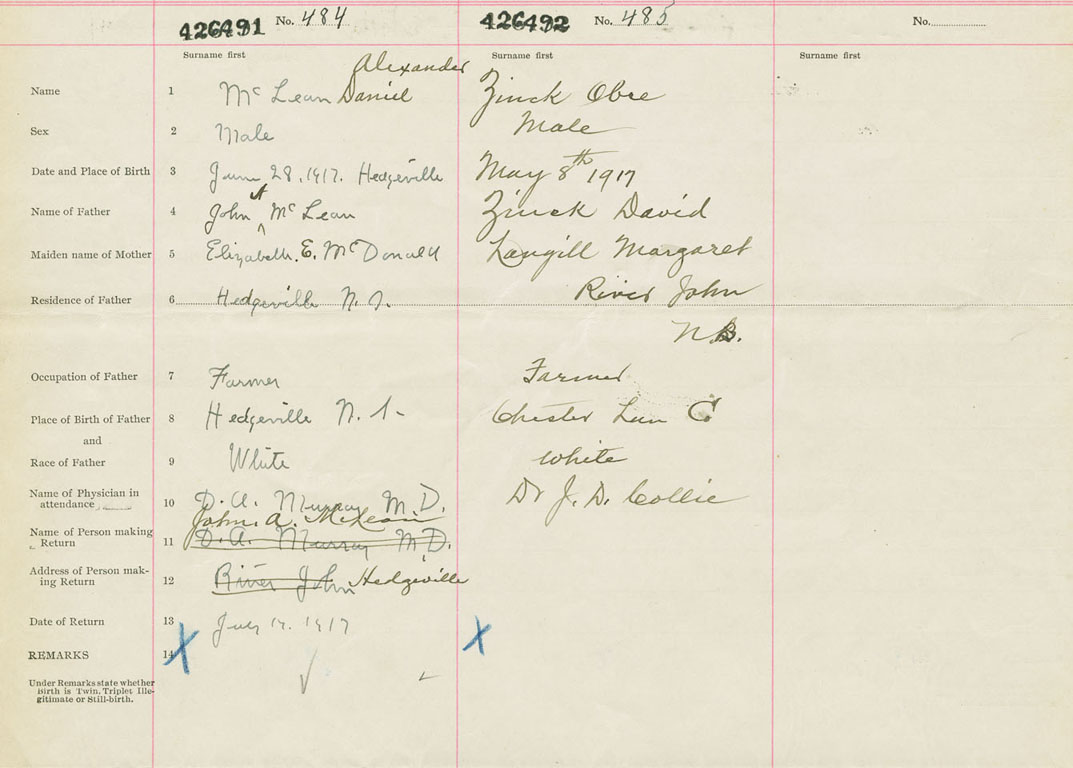 426491 No. 484
426492 No. 485
No.
Surname first
Surname first
Surname first
Name 1
Alexander
Mc Lean Daniel
Zinck Obre
Sex 2
Male
Male
Date and Place of Birth 3
June 28. 1917. Hedgeville
May 8th 1917
Name of Father 4
A
John ^ Mc Lean
Zinck David
Maiden name of Mother 5
Elizabeth. E. McDonald
Langill Margaret
Residence of Father 6
Hedgeville N. S.
River John
N.B.
Occupation of Father 7
Farmer
Farmer
Place of Birth of Father 8
Hedgeville N. S-
Chester Lun C
and
Race of Father 9
White
White
Name of Physician in
attendance 10
D. A. Murray M. D.
Dr J. D. Collie
Name of Person making
Return 11
John. A. McLean
D. A. Murray M. D.
Address of Person mak-
ing Return 12
River John Hedgeville
Date of Return 13
July 17. 1917
REMARKS 14
X
X
Under Remarks state whether
Birth is Twin, Triplet Ille-
gitimate or Still-birth.